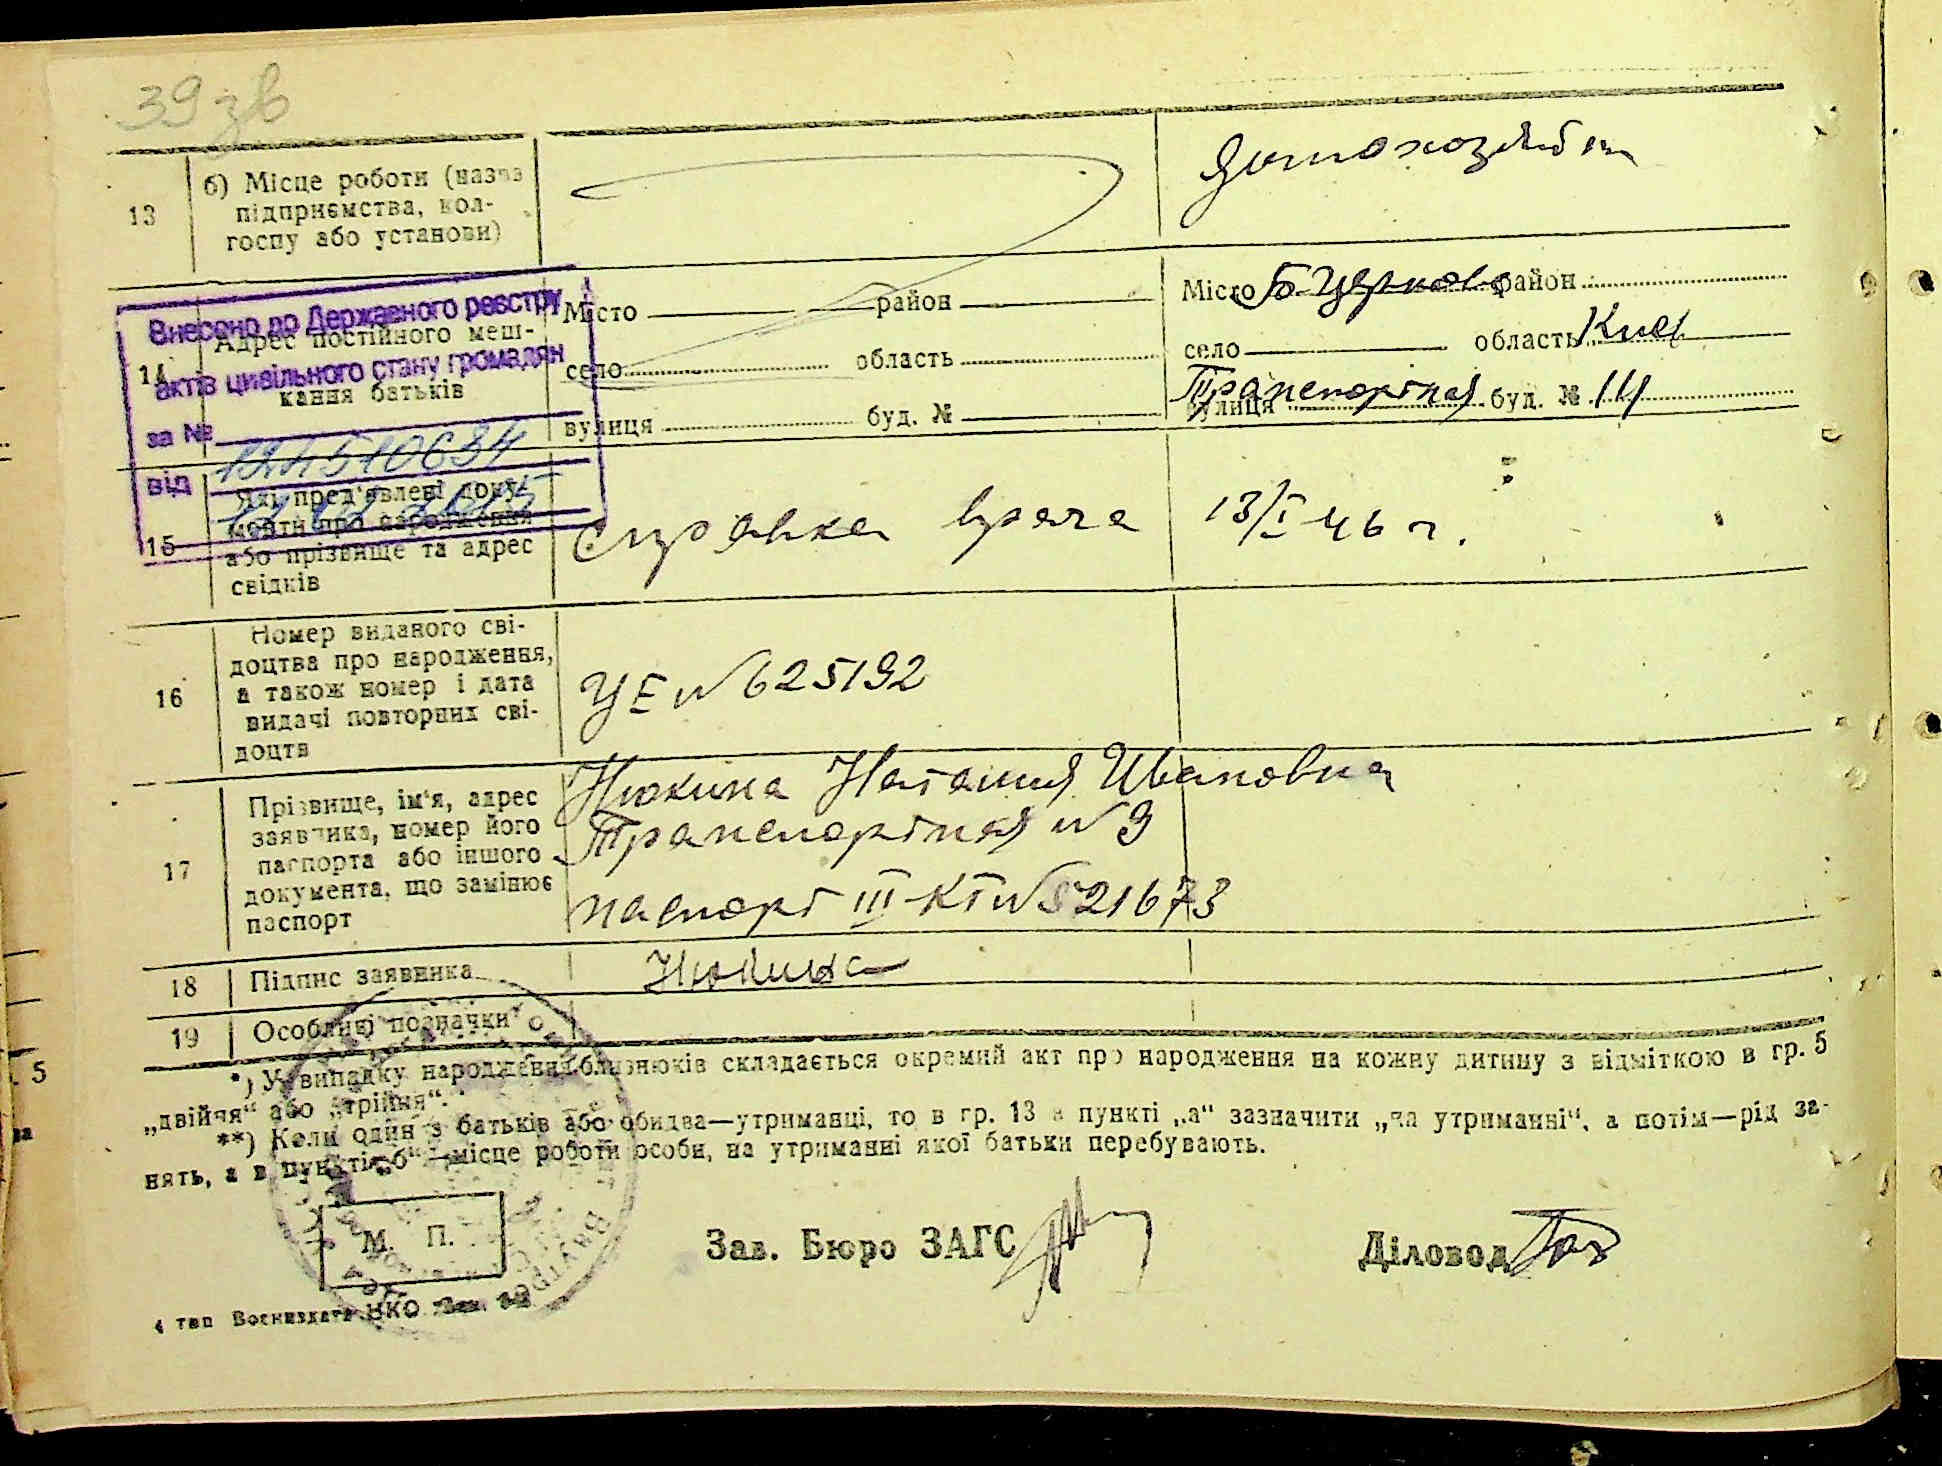 39 зв
13
б) Місце роботи (назва
підприємства, кол-
госпу або установи)
домохозяйка
14
Адрес постійного меш-
кання батьків
Місто район
село область
вулиця буд. №
Місто Б Церковь район
село область Киев
вулиця Транспортная буд. №
Внесено до Державного реєстру
актів цивільного стану громадян
за №
від
15
Які пред'явлені доку-
менти про народження
або прізвище та адрес
свідків
Справка врача 13/I 46 г.
16
Номер виданого сві-
доцтва про народження,
а також номер і дата
видачі повторних сві-
доцтв
УЕ № 625192
17
Прізвище, ім'я, адрес
заявника, номер його
паспорта або іншого
документа, що замінює
паспорт
Нюкина Наталия Ивановна
Транспортная № 9
паспорт III-КГ № 521673
18 Підпис заявника
Нюкина
19 Особливі позначки
*) У випадку народження близнюків складається окремий акт про народження на кожну дитину з відміткою в гр. 5
„двійня“ або „трійня“.
**) Коли один з батьків або обидва—утриманці, то в гр. 13 в пункті „а“ зазначити „на утриманні“, а потім—рід за-
нять, а в пункті „б“—місце роботи особи, на утриманні якої батьки перебувають.
М. П.
Зав. Бюро ЗАГС
Діловод
4 тип Воениздата НКО Зак.